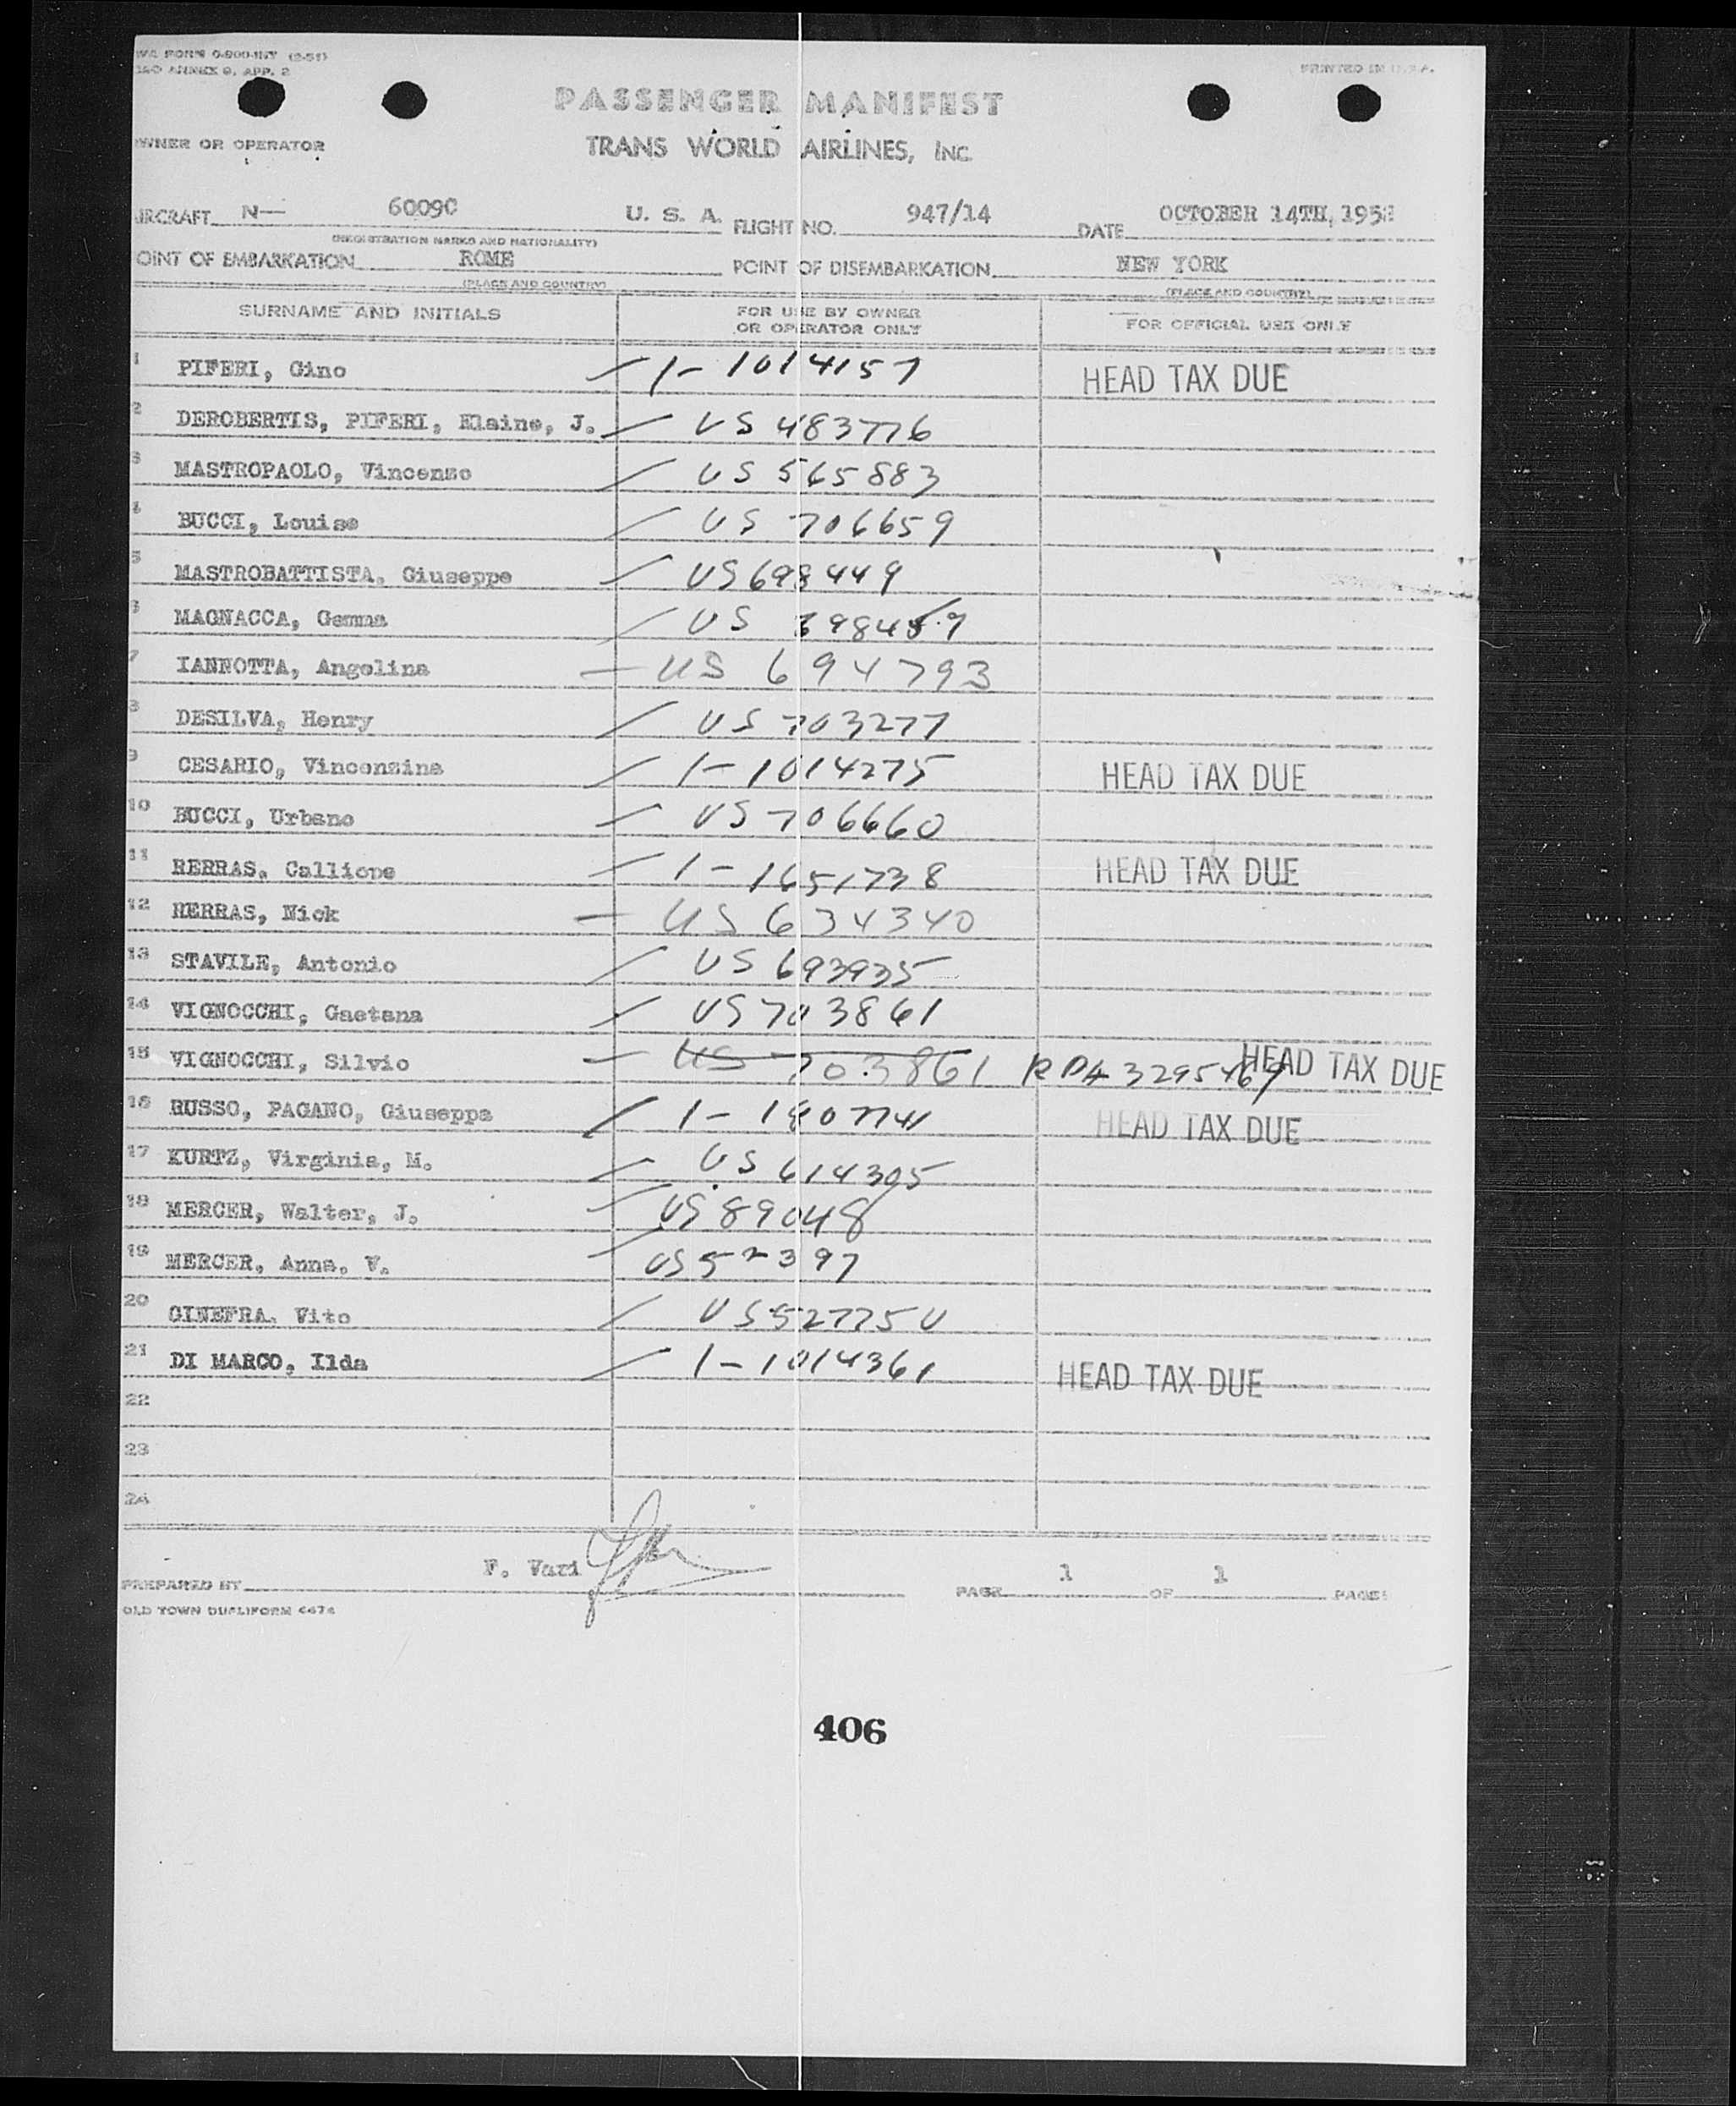 WA FORM 0-800-INT (2-51)
PRINTED IN U.S.A.
ANNEX 9, APP. 2
PASSENGER MANIFEST
OWNER OR OPERATOR
TRANS WORLD AIRLINES, INC.
AIRCRAFT N— 60090 U. S. A. FLIGHT NO. 947/14 DATE OCTOBER 14TH, 195
(REGISTRATION MARKS AND NATIONALITY)
POINT OF EMBARKATION ROME POINT OF DISEMBARKATION NEW YORK
(PLACE AND COUNTRY) (PLACE AND COUNTRY)
SURNAME AND INITIALS FOR USE BY OWNER OR OPERATOR ONLY FOR OFFICIAL USE ONLY
1 PIFERI, Gino 1-1014157 HEAD TAX DUE
2 DEROBERTIS, PIFERI, Elaine, J. US 483776
3 MASTROPAOLO, Vincenzo US 565883
4 BUCCI, Louise US 706659
5 MASTROBATTISTA, Giuseppe US 698449
6 MAGNACCA, Gemma US
7 IANNOTTA, Angelina US 694793
8 DESILVA, Henry US 703277
9 CESARIO, Vincenzina 1-1014275 HEAD TAX DUE
10 BUCCI, Urbano US 706660
11 RERRAS, Calliope 1-1651738 HEAD TAX DUE
12 RERRAS, Nick US 634340
13 STAVILE, Antonio US 693935
14 VIGNOCCHI, Gaetana US 703861
15 VIGNOCCHI, Silvio US 703861 HEAD TAX DUE
16 RUSSO, PAGANO, Giuseppa HEAD TAX DUE
17 KURTZ, Virginia, M. US 614305
18 MERCER, Walter, J. US 89048
19 MERCER, Anna, V. US 52397
20 GINEFRA, Vito US 527750
21 DI MARCO, Ilda 1-1014361 HEAD TAX DUE
22
23
24
PREPARED BY F. Vari PAGE 1 OF 1 PAGES
OLD TOWN DUPLIFORM 4474
406